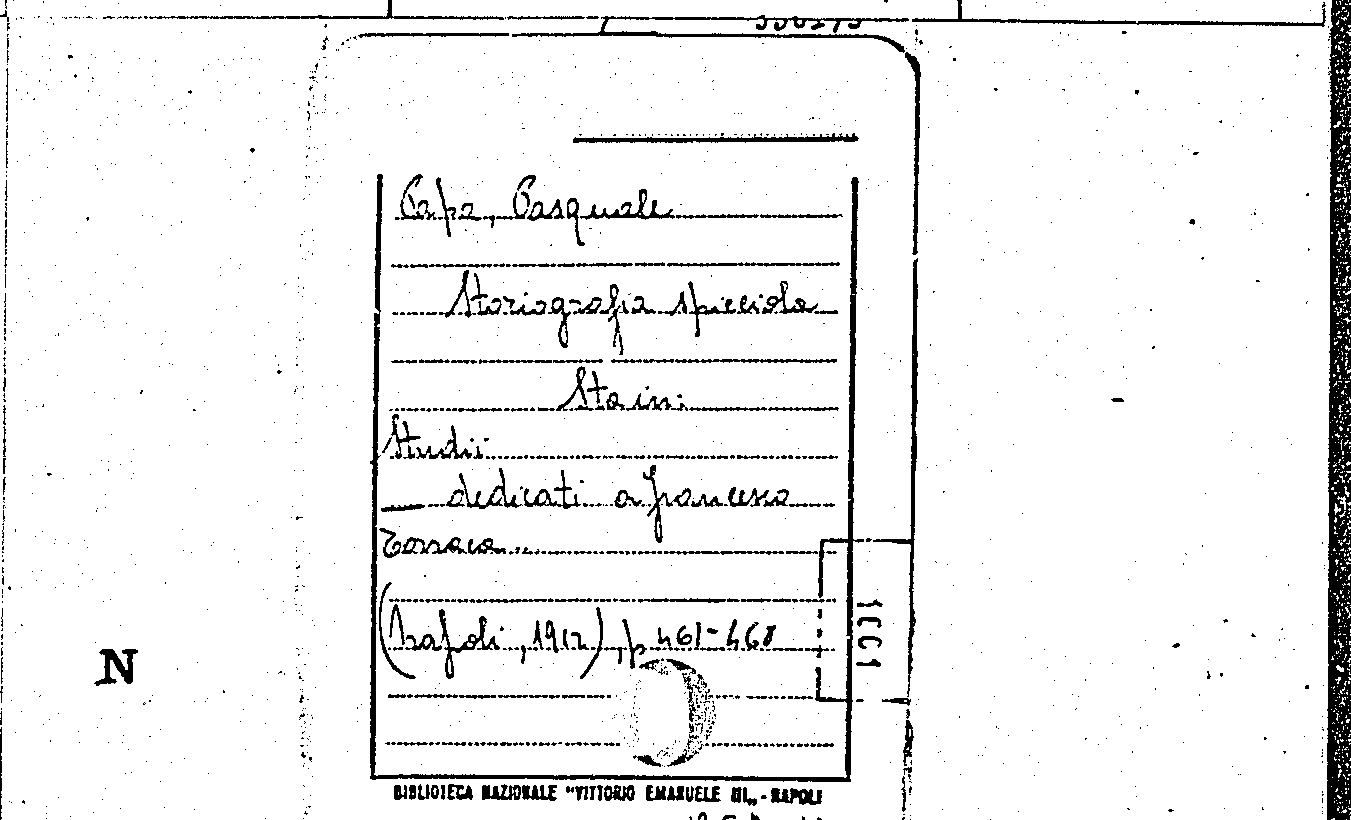 Papa, Pasquale
Storiografia spicciola
Sta in:
Studii
— dedicati a Francesco
Torraca..
(Napoli, 1912), p 461-468
N
BIBLIOTECA NAZIONALE "VITTORIO EMANUELE III„ - NAPOLI